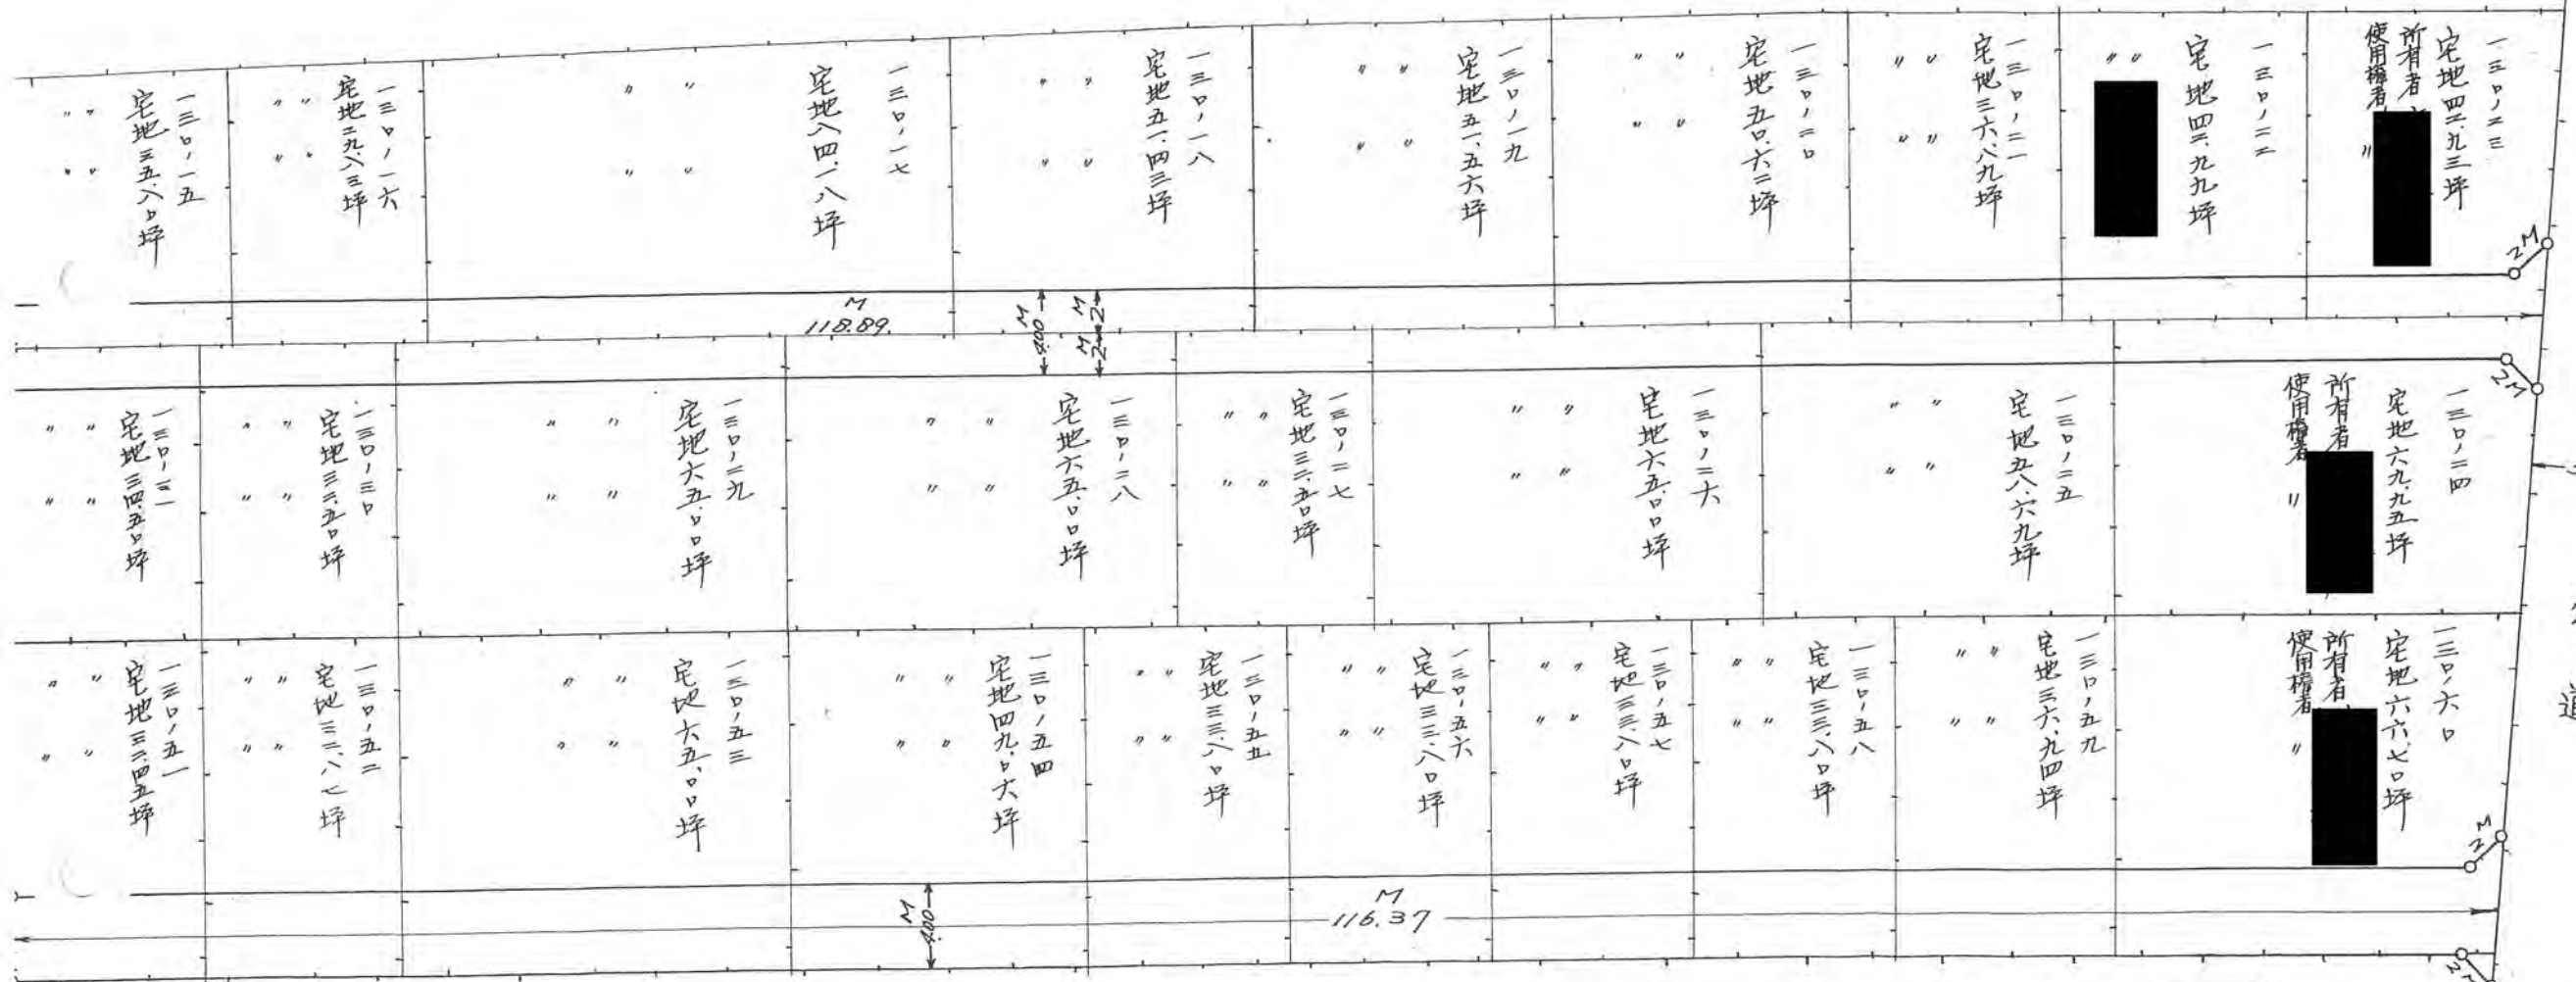 一三〇ノ二三
宅地四二、九三坪
所有者
使用権者 〃
一三〇ノ二二
宅地四二、九九坪
〃 〃
一三〇ノ二一
宅地三六、八九坪
〃 〃
〃 〃
一三〇ノ二〇
宅地五〇、六二坪
〃 〃
〃 〃
一三〇ノ一九
宅地五一、五六坪
〃 〃
〃 〃
一三〇ノ一八
宅地五一、四三坪
〃 〃
〃 〃
一三〇ノ一七
宅地八四、一八坪
〃 〃
〃 〃
一三〇ノ一六
宅地二九、八三坪
〃 〃
〃 〃
一三〇ノ一五
宅地三五、八〇坪
〃 〃
〃 〃
2M
M
118.89.
M
4.00
M
2
M
2
2M
一三〇ノ二四
宅地六九、九五坪
所有者
使用権者 〃
一三〇ノ二五
宅地五八、六九坪
〃 〃
〃 〃
一三〇ノ二六
宅地六五、〇〇坪
〃 〃
〃 〃
一三〇ノ二七
宅地三二、五〇坪
〃 〃
〃 〃
一三〇ノ二八
宅地六五、〇〇坪
〃 〃
〃 〃
一三〇ノ二九
宅地六五、〇〇坪
〃 〃
〃 〃
一三〇ノ三〇
宅地三二、五〇坪
〃 〃
〃 〃
一三〇ノ三一
宅地三四、五〇坪
〃 〃
〃 〃
道
一三〇ノ六〇
宅地六六、七〇坪
所有者
使用権者 〃
一三〇ノ五九
宅地三六、九四坪
〃 〃
〃 〃
一三〇ノ五八
宅地三三、八〇坪
〃 〃
〃 〃
一三〇ノ五七
宅地三三、八〇坪
〃 〃
〃 〃
一三〇ノ五六
宅地三三、八〇坪
〃 〃
〃 〃
一三〇ノ五五
宅地三三、八〇坪
〃 〃
〃 〃
一三〇ノ五四
宅地四九、〇六坪
〃 〃
〃 〃
一三〇ノ五三
宅地六五、〇〇坪
〃 〃
〃 〃
一三〇ノ五二
宅地三二、八七坪
〃 〃
〃 〃
一三〇ノ五一
宅地三二、四五坪
〃 〃
〃 〃
2M
M
4.00
M
116.37